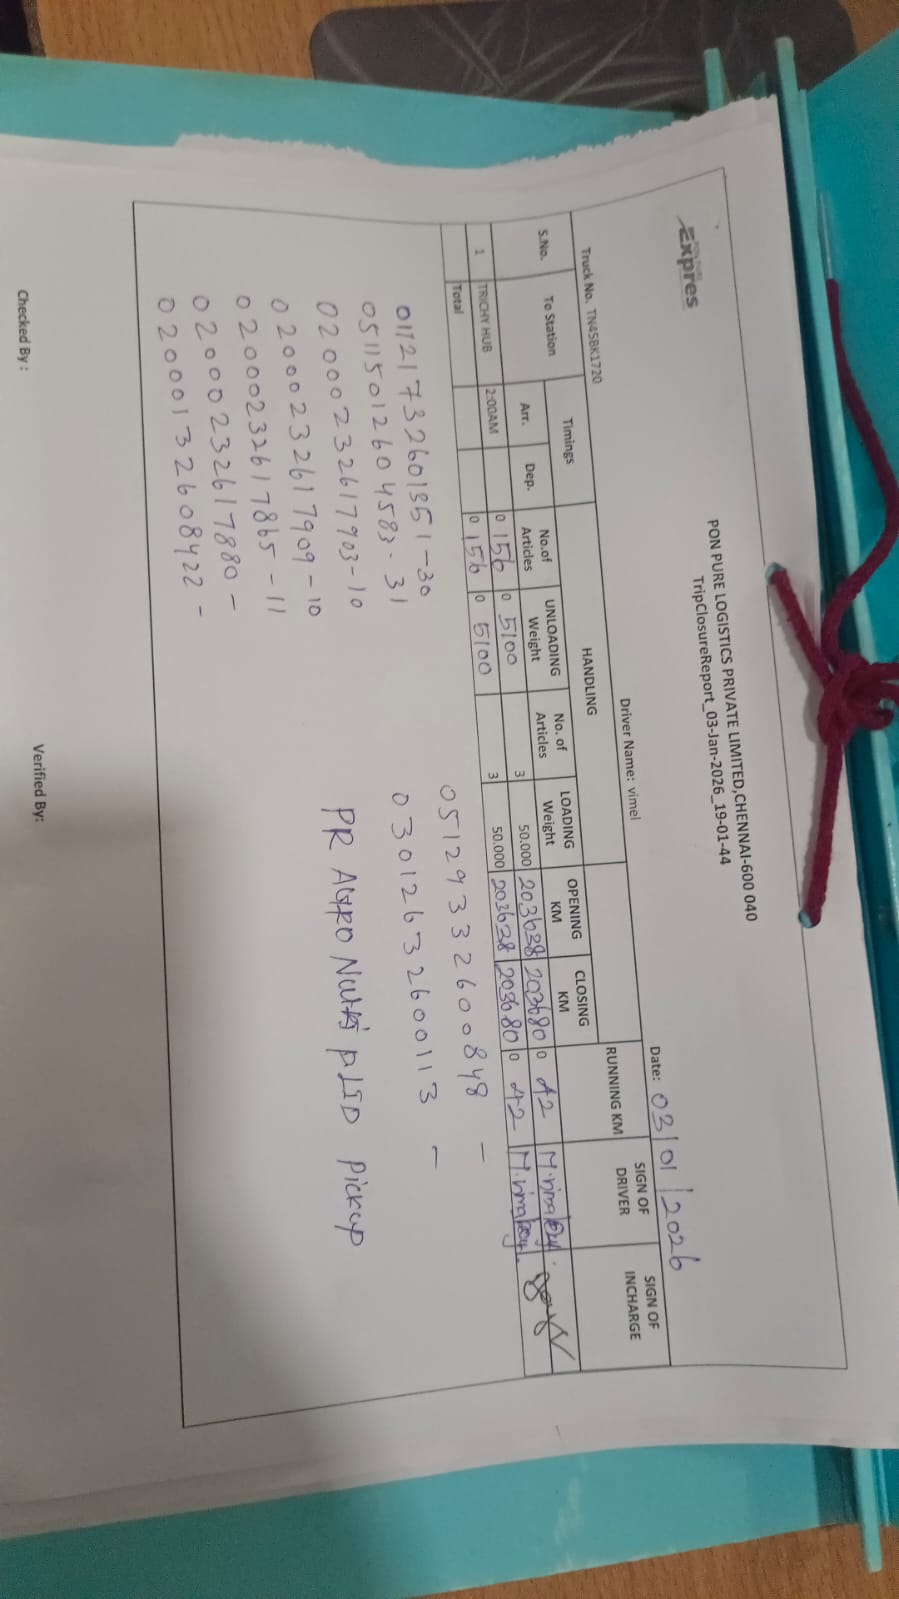 PON PURE LOGISTICS PRIVATE LIMITED,CHENNAI-600 040
TripClosureReport_03-Jan-2026_19-01-44
PON PURE
Expres
Date: 03/01/2026
Truck No. TN45BK1720 Driver Name: vimel
S.No. To Station Timings HANDLING OPENING KM CLOSING KM RUNNING KM SIGN OF DRIVER SIGN OF INCHARGE
UNLOADING LOADING
Arr. Dep. No.of Articles Weight No. of Articles Weight
1 TRICHY HUB 2:00AM 0 156 0 5100 3 50.000 203638 203680 0 42
Total 0 156 0 5100 3 50.000 203638 203680 0 42
01121732601351-30
05115012604583-31
0200023261 7903-10
0200023261 7909-10
0200023261 7865-11
0200023261 7880-
0200013260 8422-
0512933260 0848 -
0301263260 0113 -
PR AGRO Nutri pLTD Pickup
Checked By: Verified By: